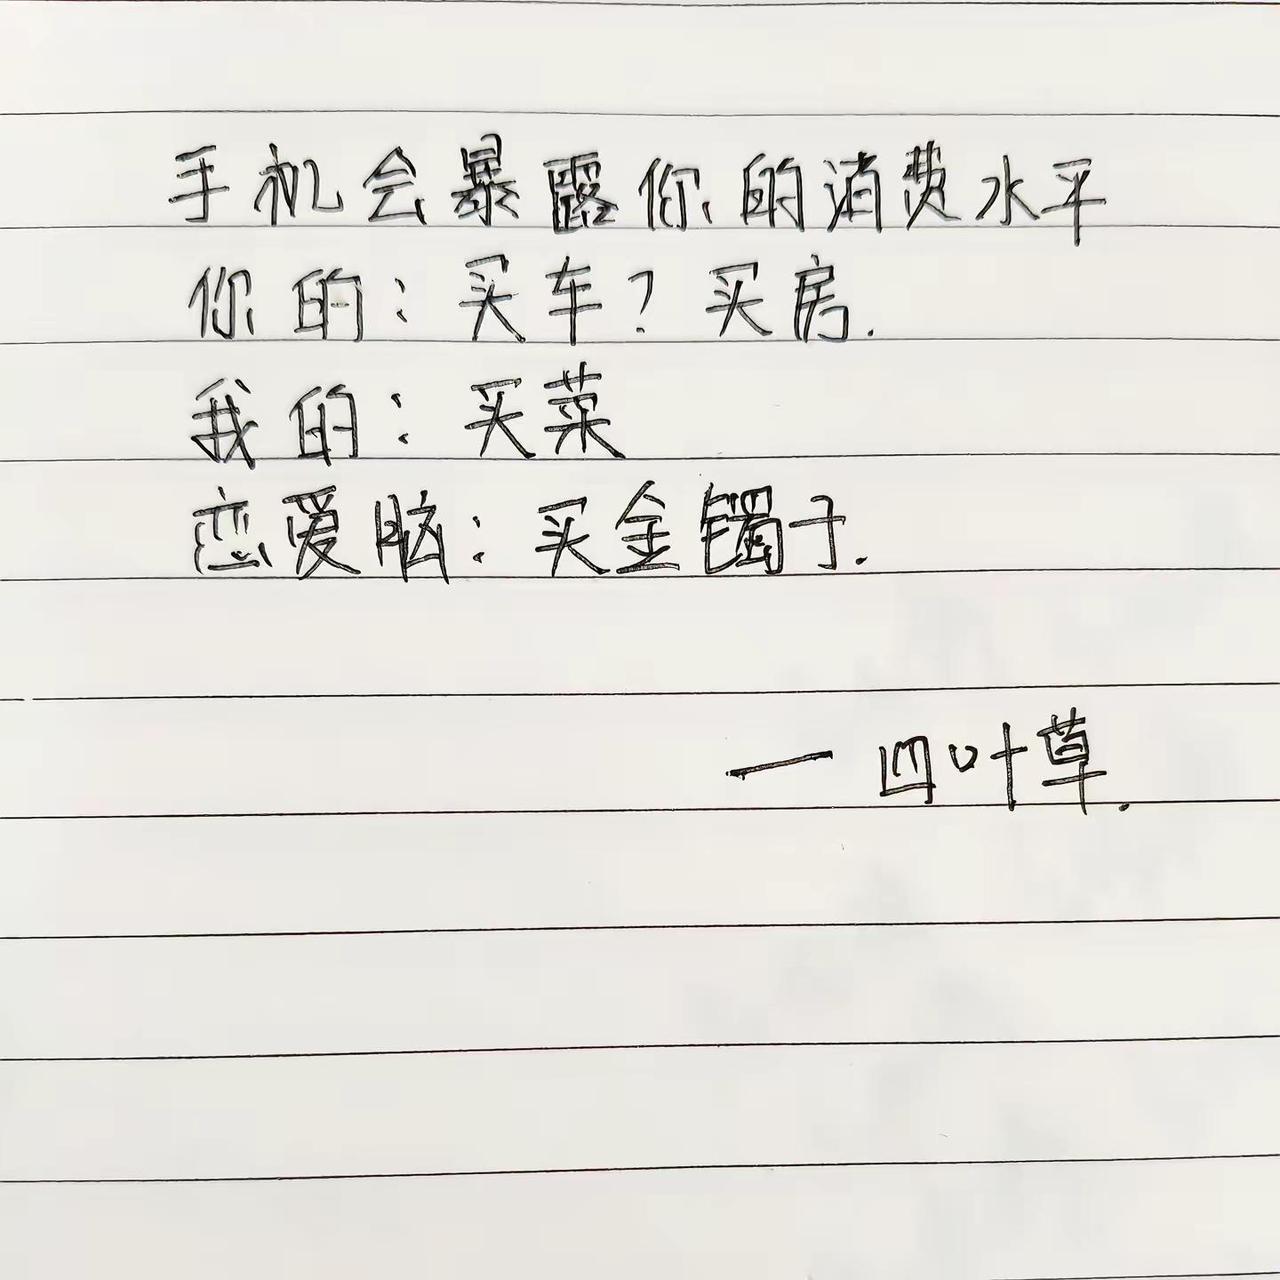 手机会暴露你的消费水平
你的：买车？买房.
我的：买菜
恋爱脑：买金镯子.
— 四叶草.